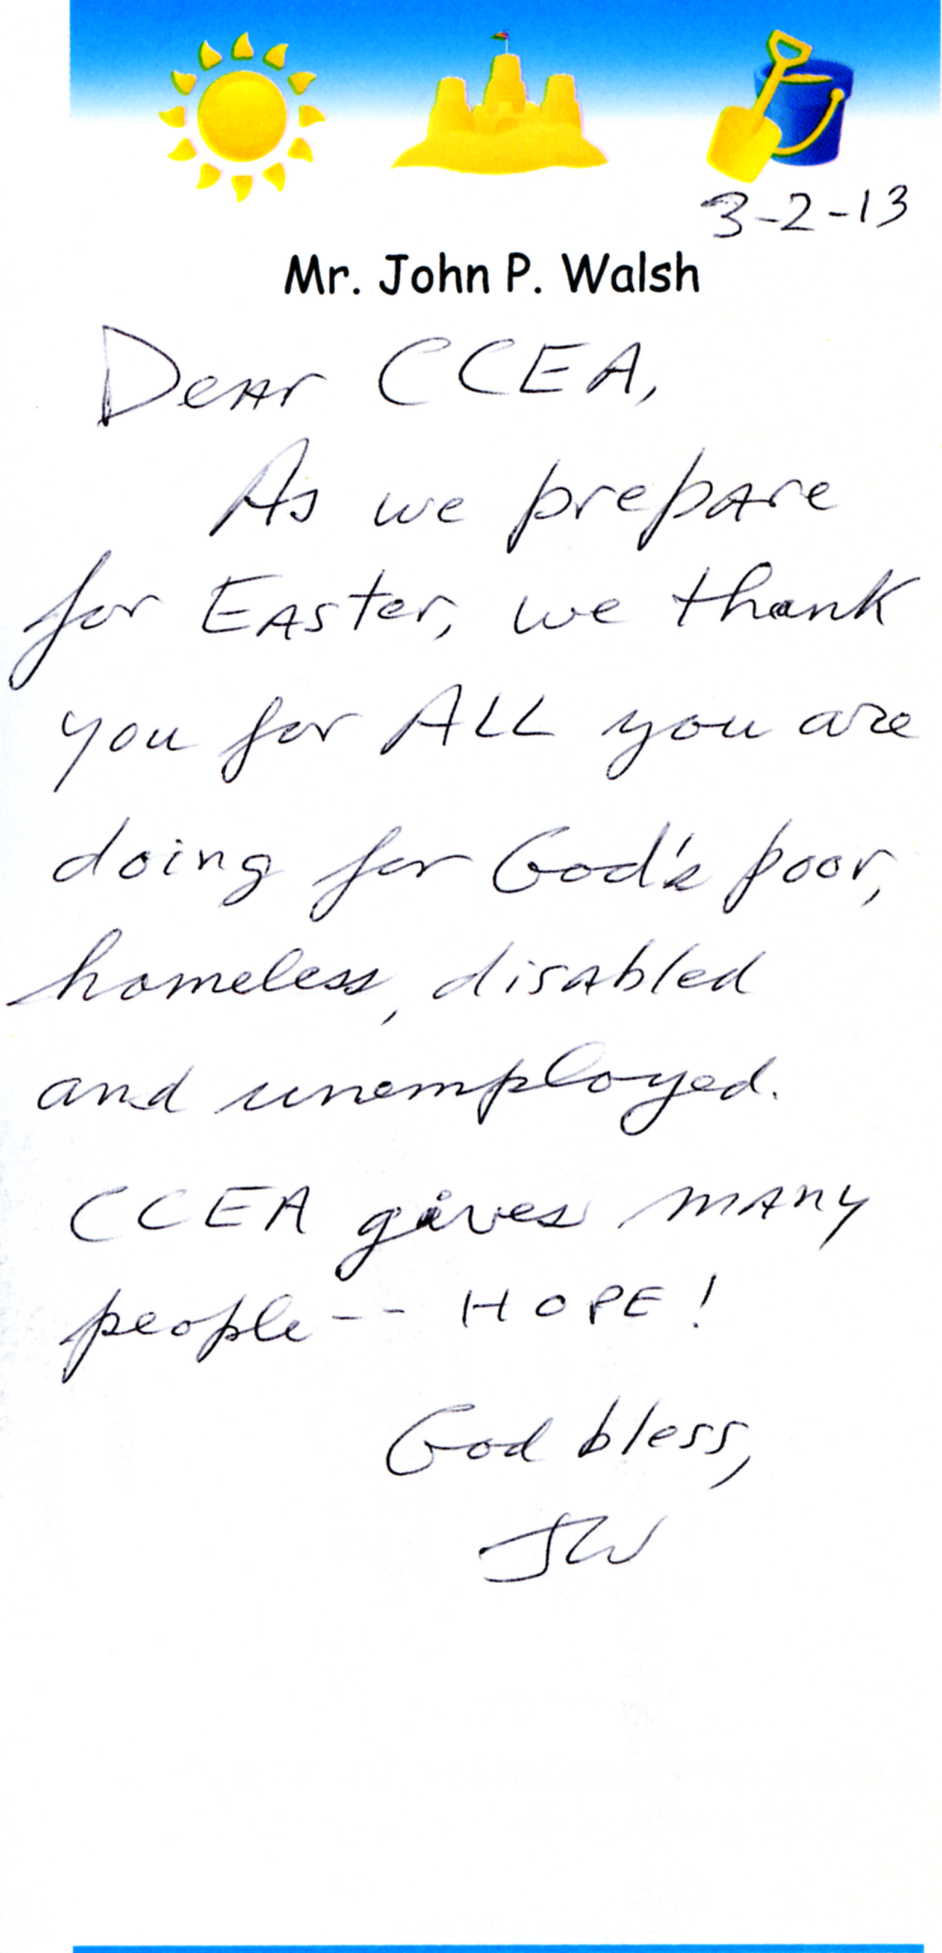 3-2-13
Mr. John P. Walsh
Dear CCEA,
As we prepare
for Easter, we thank
you for ALL you are
doing for God's poor,
homeless, disabled
and unemployed.
CCEA gives many
people -- HOPE!
God bless,
JW